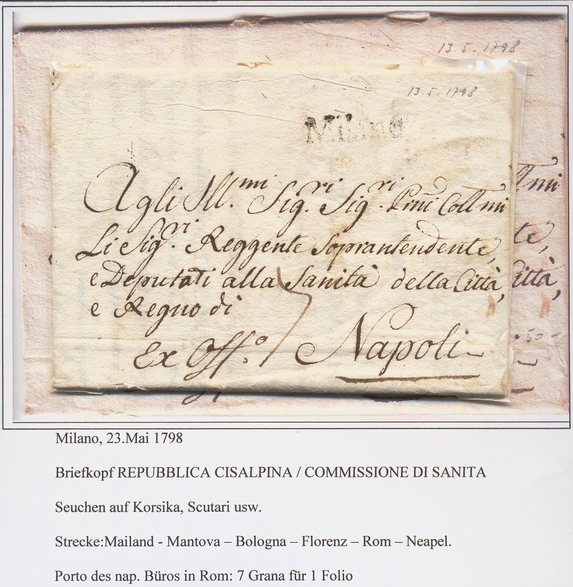 13.5.1798
13.5.1798
Milano
Agli Ill.mi Sig.ri Sig.ri P.mi Coll.mi
Li Sig.ri Reggente Soprantendente,
e Deputati alla Sanità della Città,
e Regno di
Ex Off.o 7 Napoli
mi
te,
ittà,
50
Milano, 23.Mai 1798
Briefkopf REPUBBLICA CISALPINA / COMMISSIONE DI SANITA
Seuchen auf Korsika, Scutari usw.
Strecke:Mailand - Mantova – Bologna – Florenz – Rom – Neapel.
Porto des nap. Büros in Rom: 7 Grana für 1 Folio